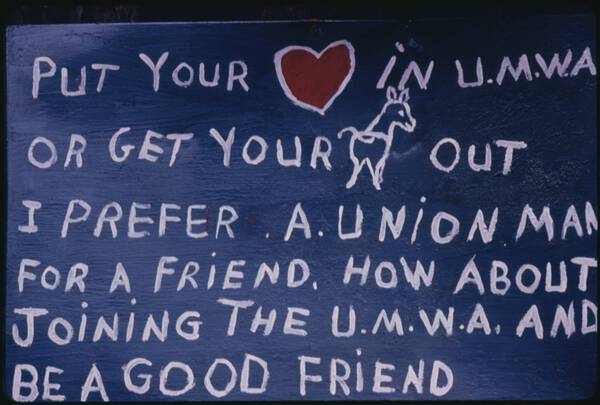 PUT YOUR IN U.M.W.A
OR GET YOUR OUT
I PREFER . A. UNION MAN
FOR A FRIEND. HOW ABOUT
JOINING THE U.M.W.A. AND
BE A GOOD FRIEND